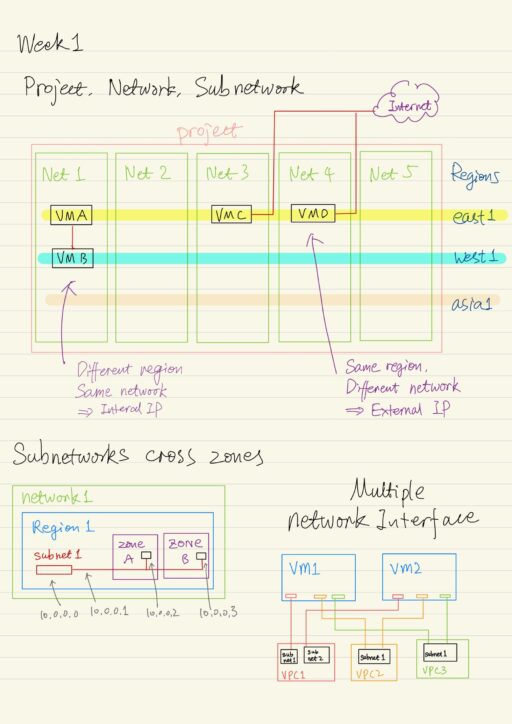 Week 1
Project, Network, Subnetwork
Internet
project
Net 1 Net 2 Net 3 Net 4 Net 5 Regions
VMA VMC VMD east1
VM B west1
asia1
Different region
Same network
⇒ Internal IP
Same region,
Different network
⇒ External IP
Subnetworks cross zones
network1
Region 1
subnet1
zone
A
zone
B
10.0.0.0 10.0.0.1 10.0.0.2 10.0.0.3
Multiple
network Interface
Vm1 Vm2
Sub
net1
Sub
net 2
Subnet 1
subnet 1
VPC1 VPC2 VPC3